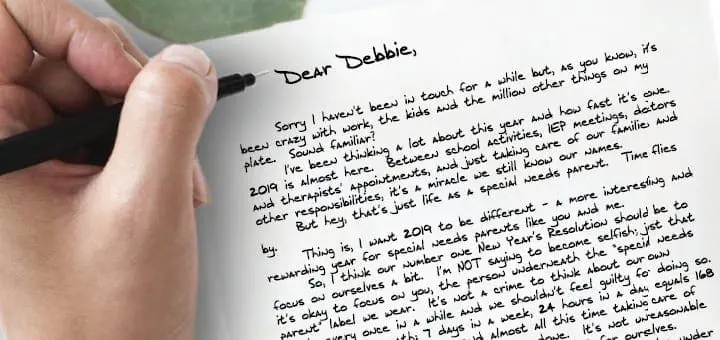 Dear Debbie,
Sorry I haven't been in touch for a while but, as you know, it's
been crazy with work, the kids and the million other things on my
plate. Sound familiar?
I've been thinking a lot about this year and how fast it's one.
2019 is almost here. Between school activities, IEP meetings, doctors
and therapists' appointments, and just taking care of our families and
other responsibilities, it's a miracle we still know our names.
But hey, that's just life as a special needs parent. Time flies
by.
Thing is, I want 2019 to be different - a more interesting and
rewarding year for special needs parents like you and me.
So, I think our number one New Year's Resolution should be to
focus on ourselves a bit. I'm NOT saying to become selfish; jst that
it's okay to focus on you, the person underneath the "special needs
parent" label we wear. It's not a crime to think about our own
every once in a while and we shouldn't feel guilty for doing so.
7 days in a week, 24 hours in a day equals 168
almost all this time taking care of
done. It's not unreasonable
for ourselves.
under